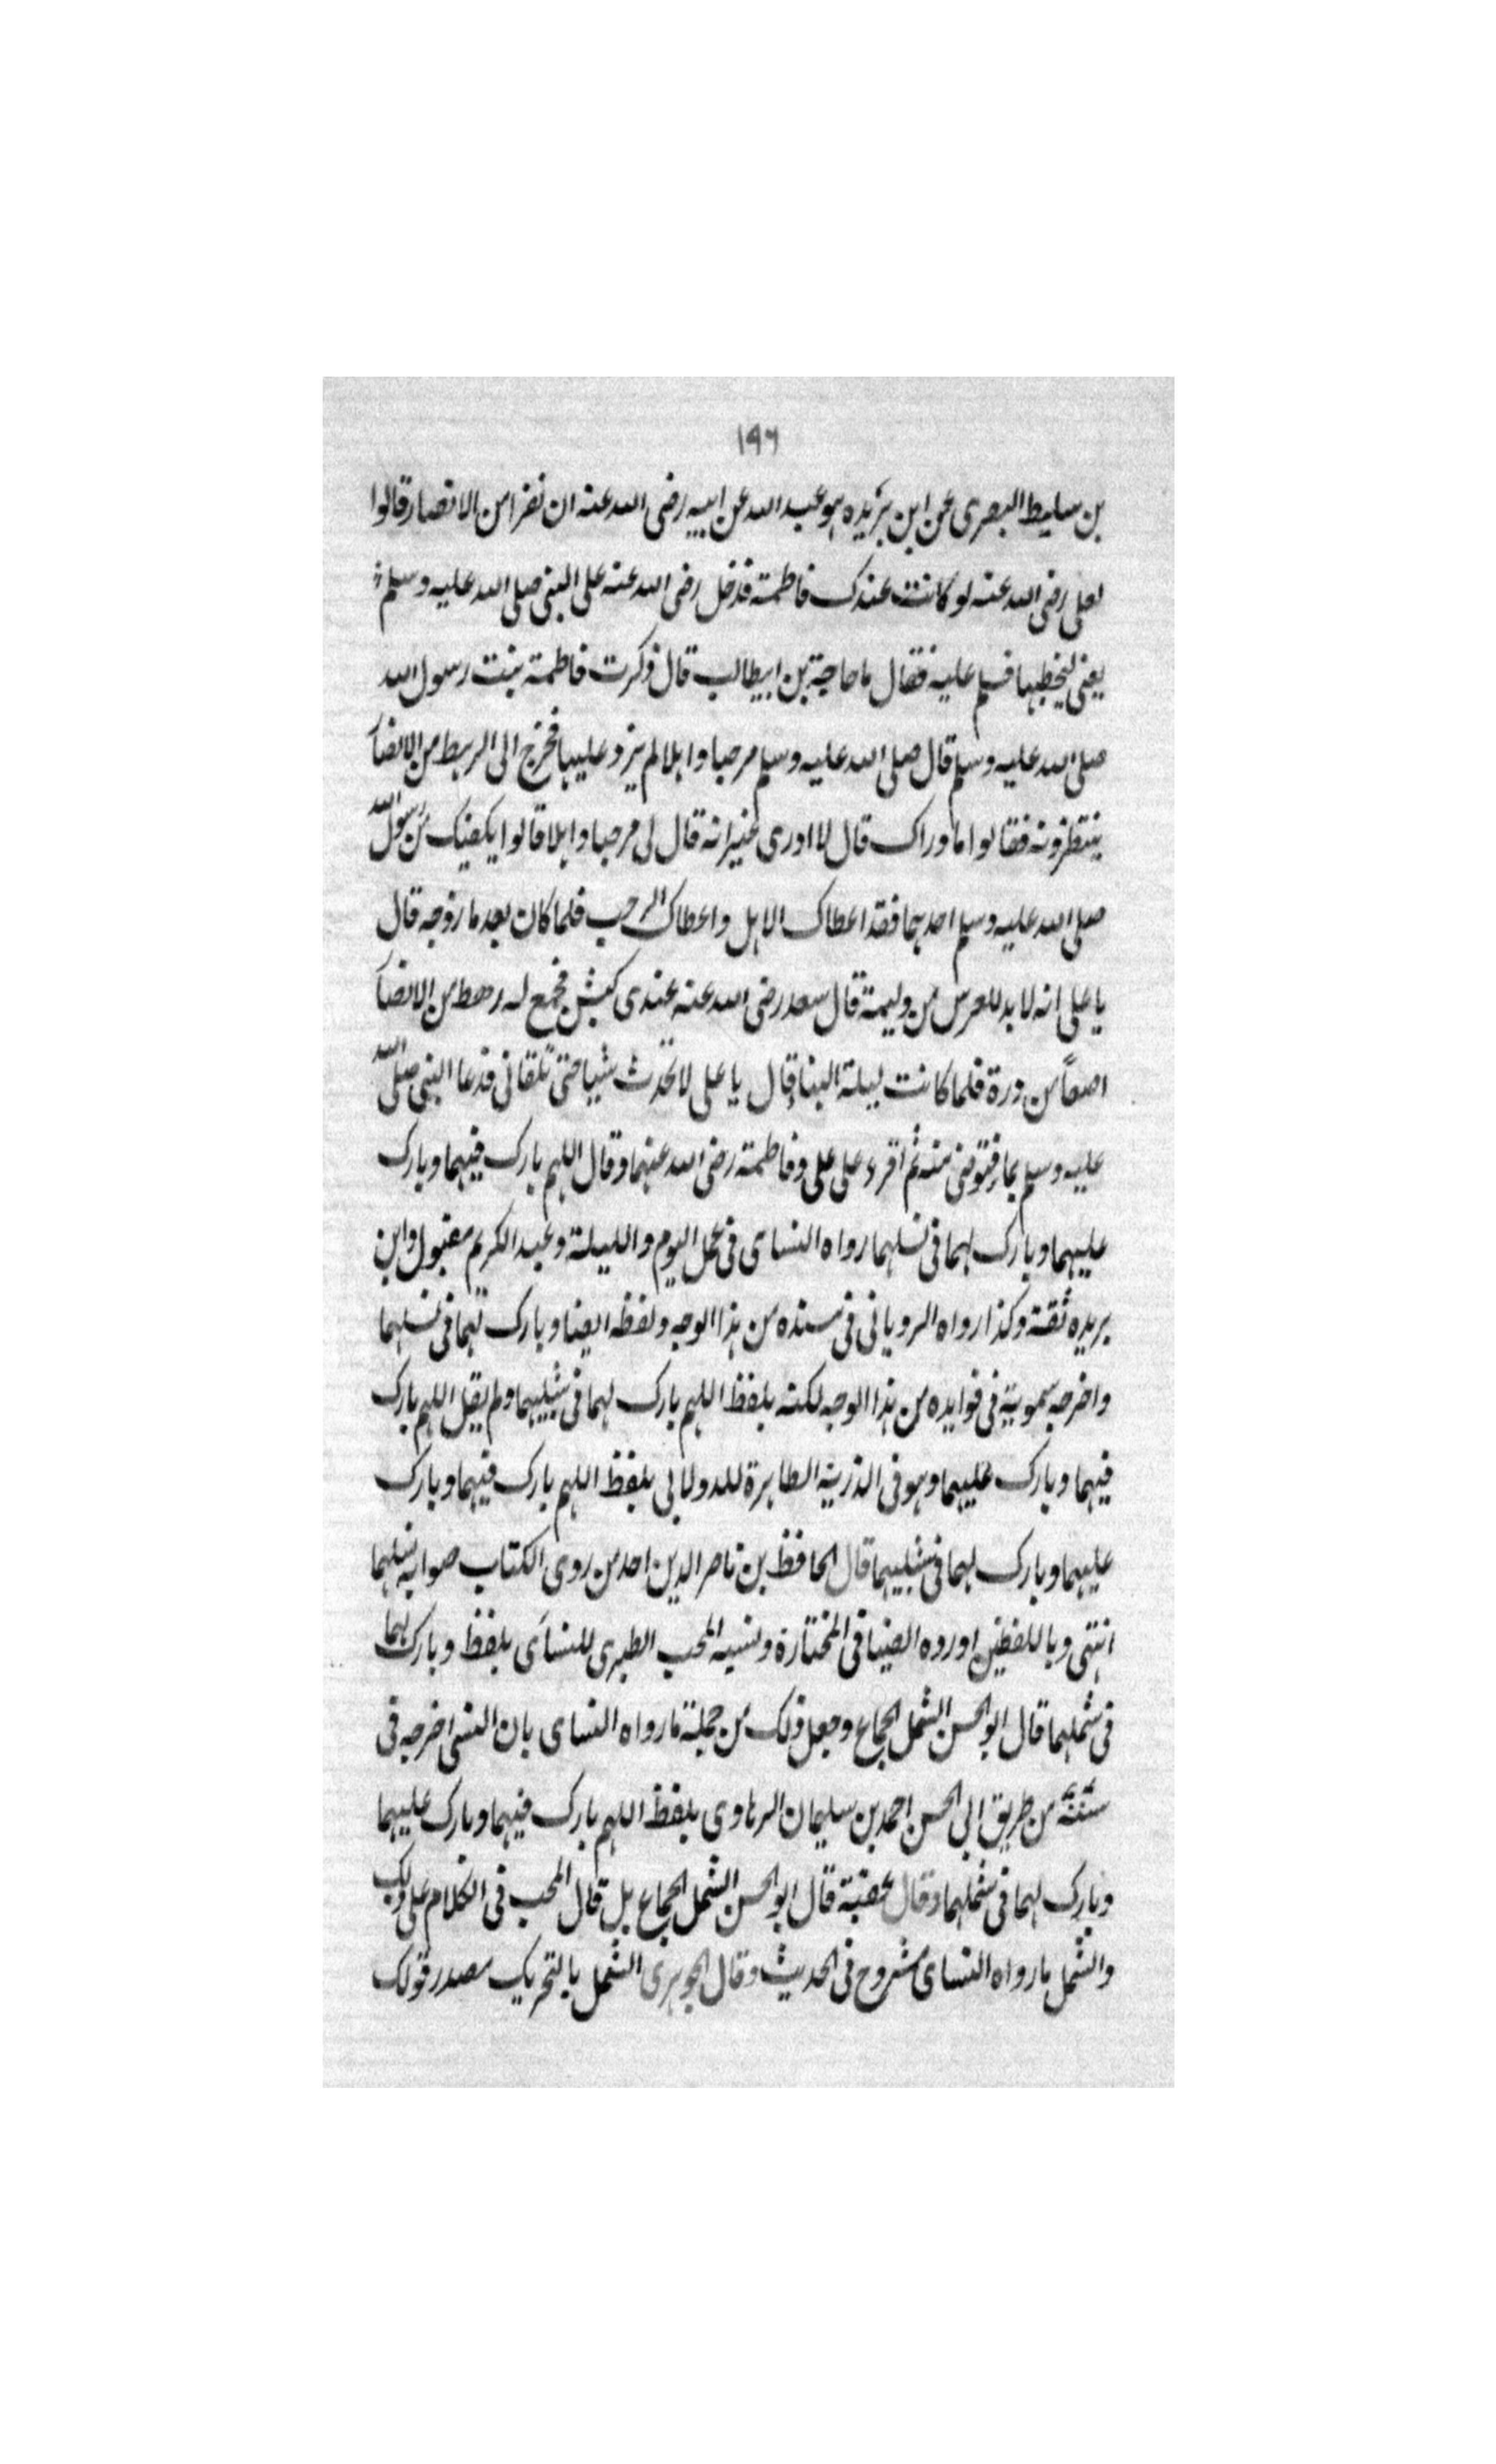 ١٩٦
بن سليط البصرى عن ابن بريده هو عبد الله عن ابيه رضى الله عنه ان نفرا من الانصار قالوا
لعلى رضى الله عنه لو كانت عندك فاطمة فدخل رضى الله عنه على النبى صلى الله عليه وسلم
يعنى ليخطبها فسلم عليه فقال ما حاجة بن ابيطالب قال ذكرت فاطمة بنت رسول الله
صلى الله عليه وسلم قال صلى الله عليه وسلم مرحبا واهلا لم يزد عليها فخرج الى الرهط من الانصا
ينتظرونه فقالوا ما وراك قال لا ادرى غير انه قال لى مرحبا واهلا قالوا يكفيك من رسول الله
صلى الله عليه وسلم احدهما فقد اعطاك الاهل واعطاك الرحب فلما كان بعد ما زوجه قال
يا على انه لا بد للعرس من وليمة قال سعد رضى الله عنه عندى كبش فجمع له رهط من الانصا
اصعا من ذرة فلما كانت ليلة البنا قال يا على لا تحدث شيا حتى تلقانى فدعا النبى صلى الله
عليه وسلم بما فتوضى منه ثم افرء على على وفاطمة رضى الله عنهما وقال اللهم بارك فيهما وبارك
عليهما وبارك لهما فى نسلهما رواه النساى فى عمل اليوم والليلة وعبد الكريم مقبول وابن
بريده ثقة وكذا رواه الرويانى فى مسنده من هذا الوجه ولفظه ايضا وبارك لهما فى نسلهما
واخرجه سموية فى فوايده من هذا الوجه لكنه بلفظ اللهم بارك لهما فى شبليهما ولم يقل اللهم بارك
فيهما وبارك عليهما وهو فى الذرية الطاهرة للدولابى بلفظ اللهم بارك فيهما وبارك
عليهما وبارك لهما فى شبليهما قال الحافظ بن ناصر الدين احد من روى الكتاب صوابه نسلهما
انتهى وباللفظين اورده الضيا فى المختارة ونسبه المحب الطبرى للنساى بلفظ وبارك لهما
فى شملهما قال ابو الحسن الشمل الجماع وجعل ذلك من جملة ما رواه النساى بان النسى اخرجه فى
سننه من طريق ابى الحسن احمد بن سليمان الرهاوى بلفظ اللهم بارك فيهما وبارك عليهما
وبارك لهما فى شملهما وقال عقبة قال ابو الحسن الشمل الجماع بل قال المحب فى الكلام على ذلك
والشمل ما رواه النساى مشروح فى الحديث وقال الجوهرى الشمل بالتحريك مصدر قولك